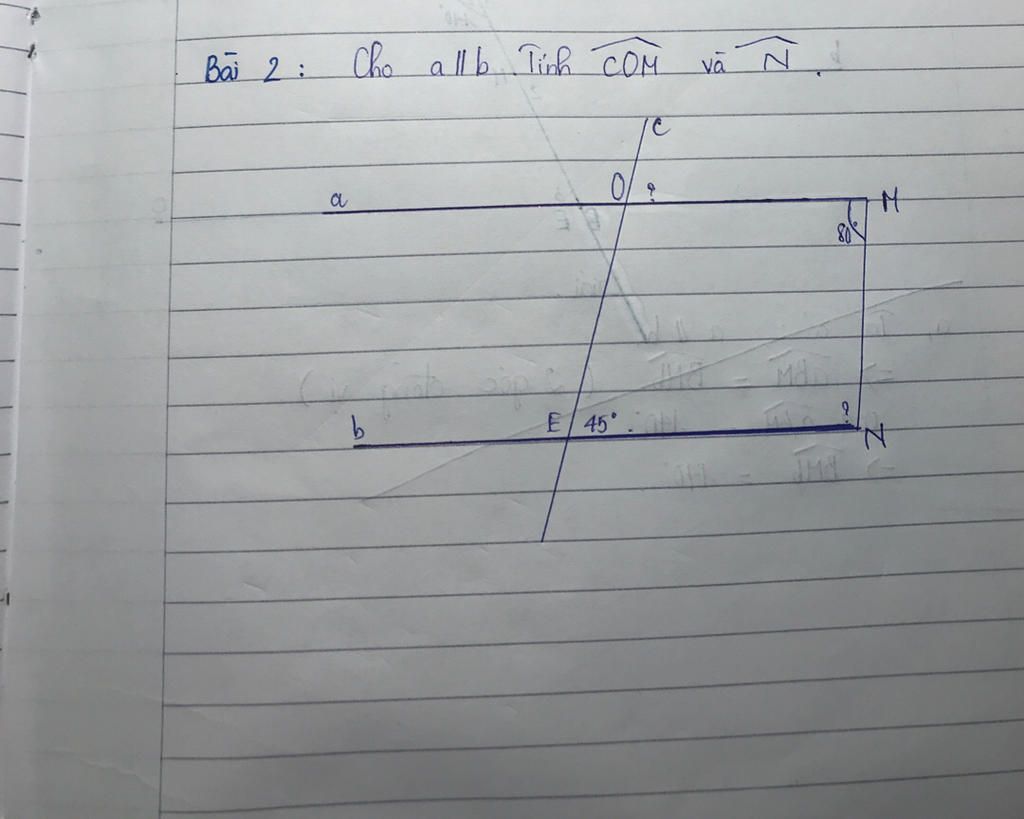 Bài 2 : Cho a // b Tính COM và N .
C
O ?
a M
80°
E 45° . ?
b N